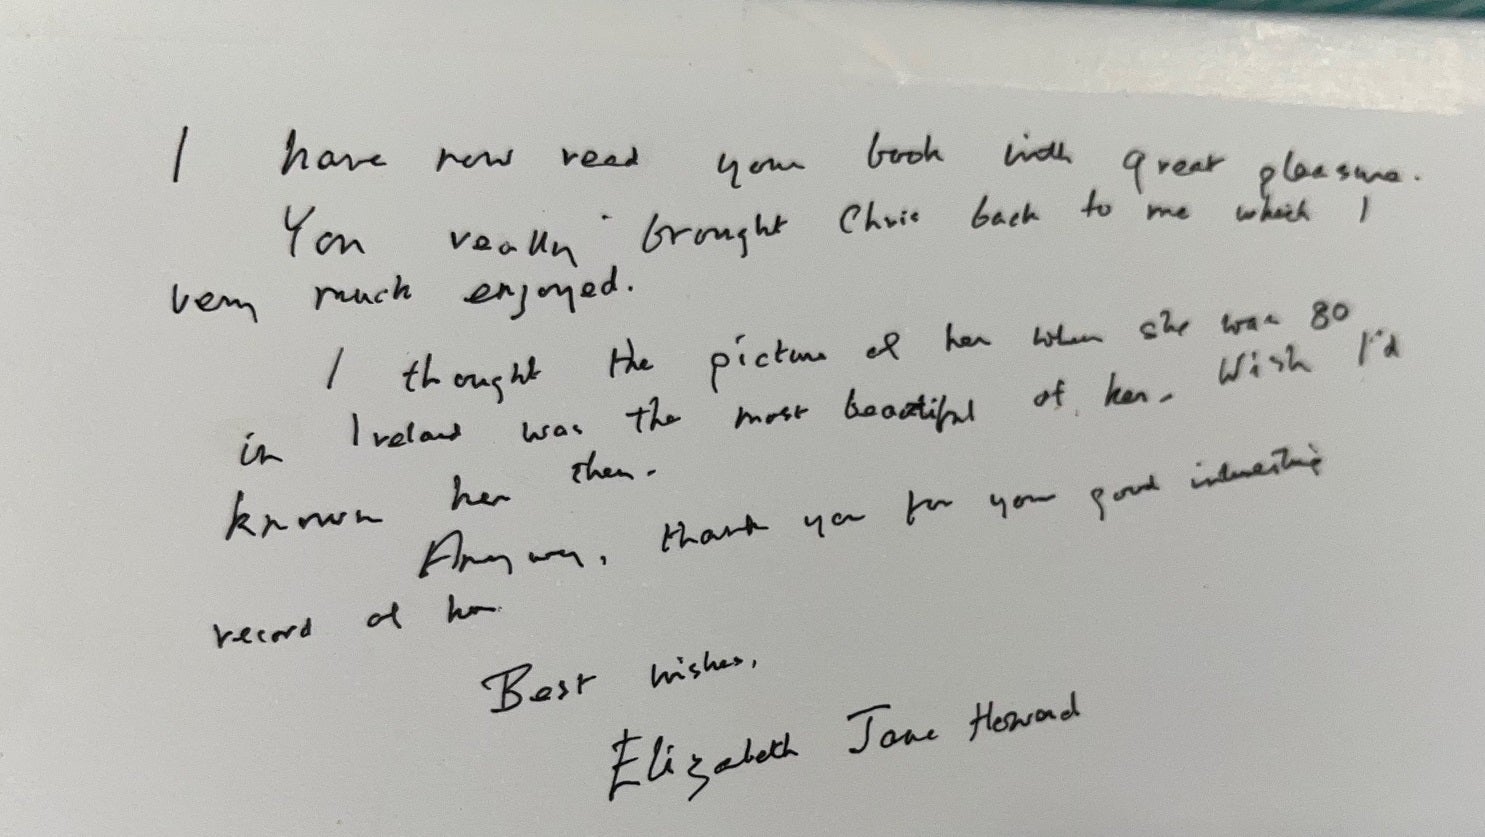 I have now read your book with great pleasure.
You really brought Chris back to me which I
very much enjoyed.
I thought the picture of her when she was 80
in Ireland was the most beautiful of her. Wish I'd
known her then.
Anyway, thank you for your good interesting
record of her
Best wishes,
Elizabeth Jane Howard